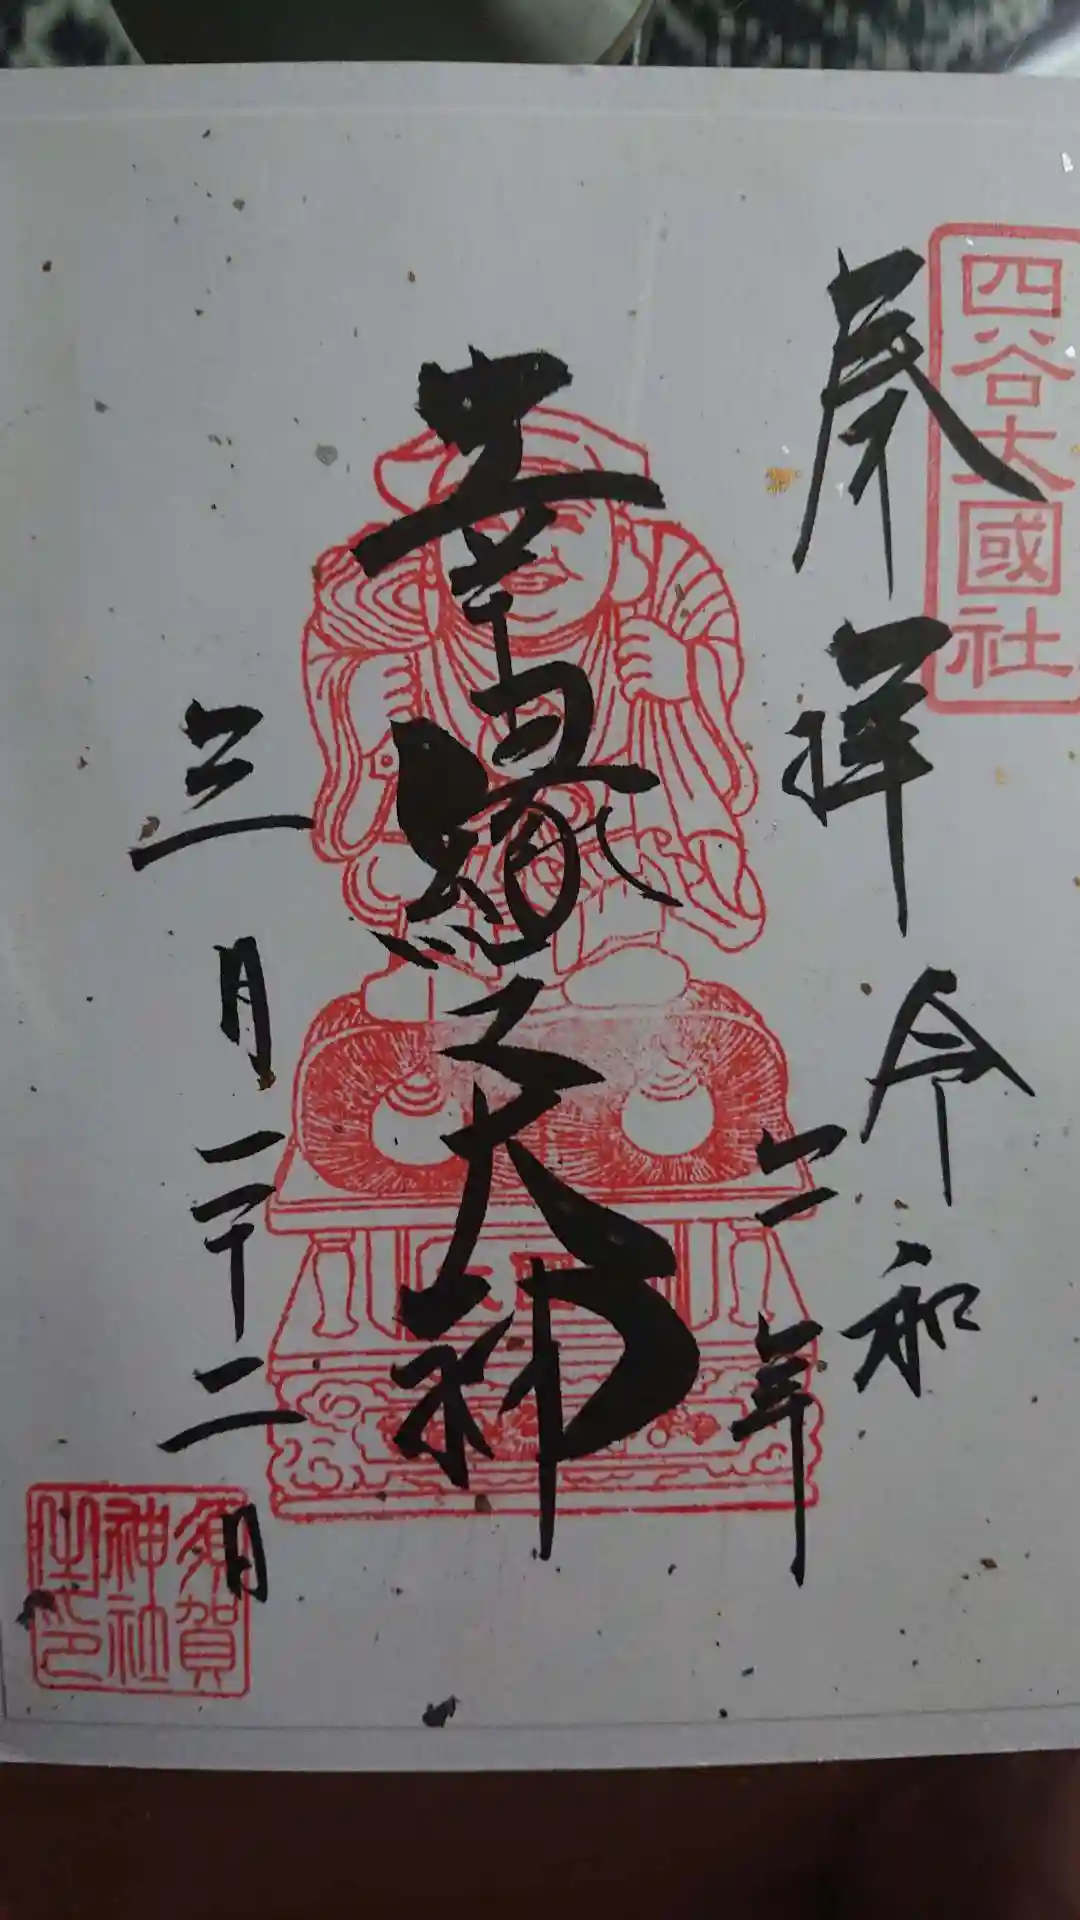 四谷大國社
奉拝
令和六年
良縁之大神
三月二十二日
須賀
神社
之印